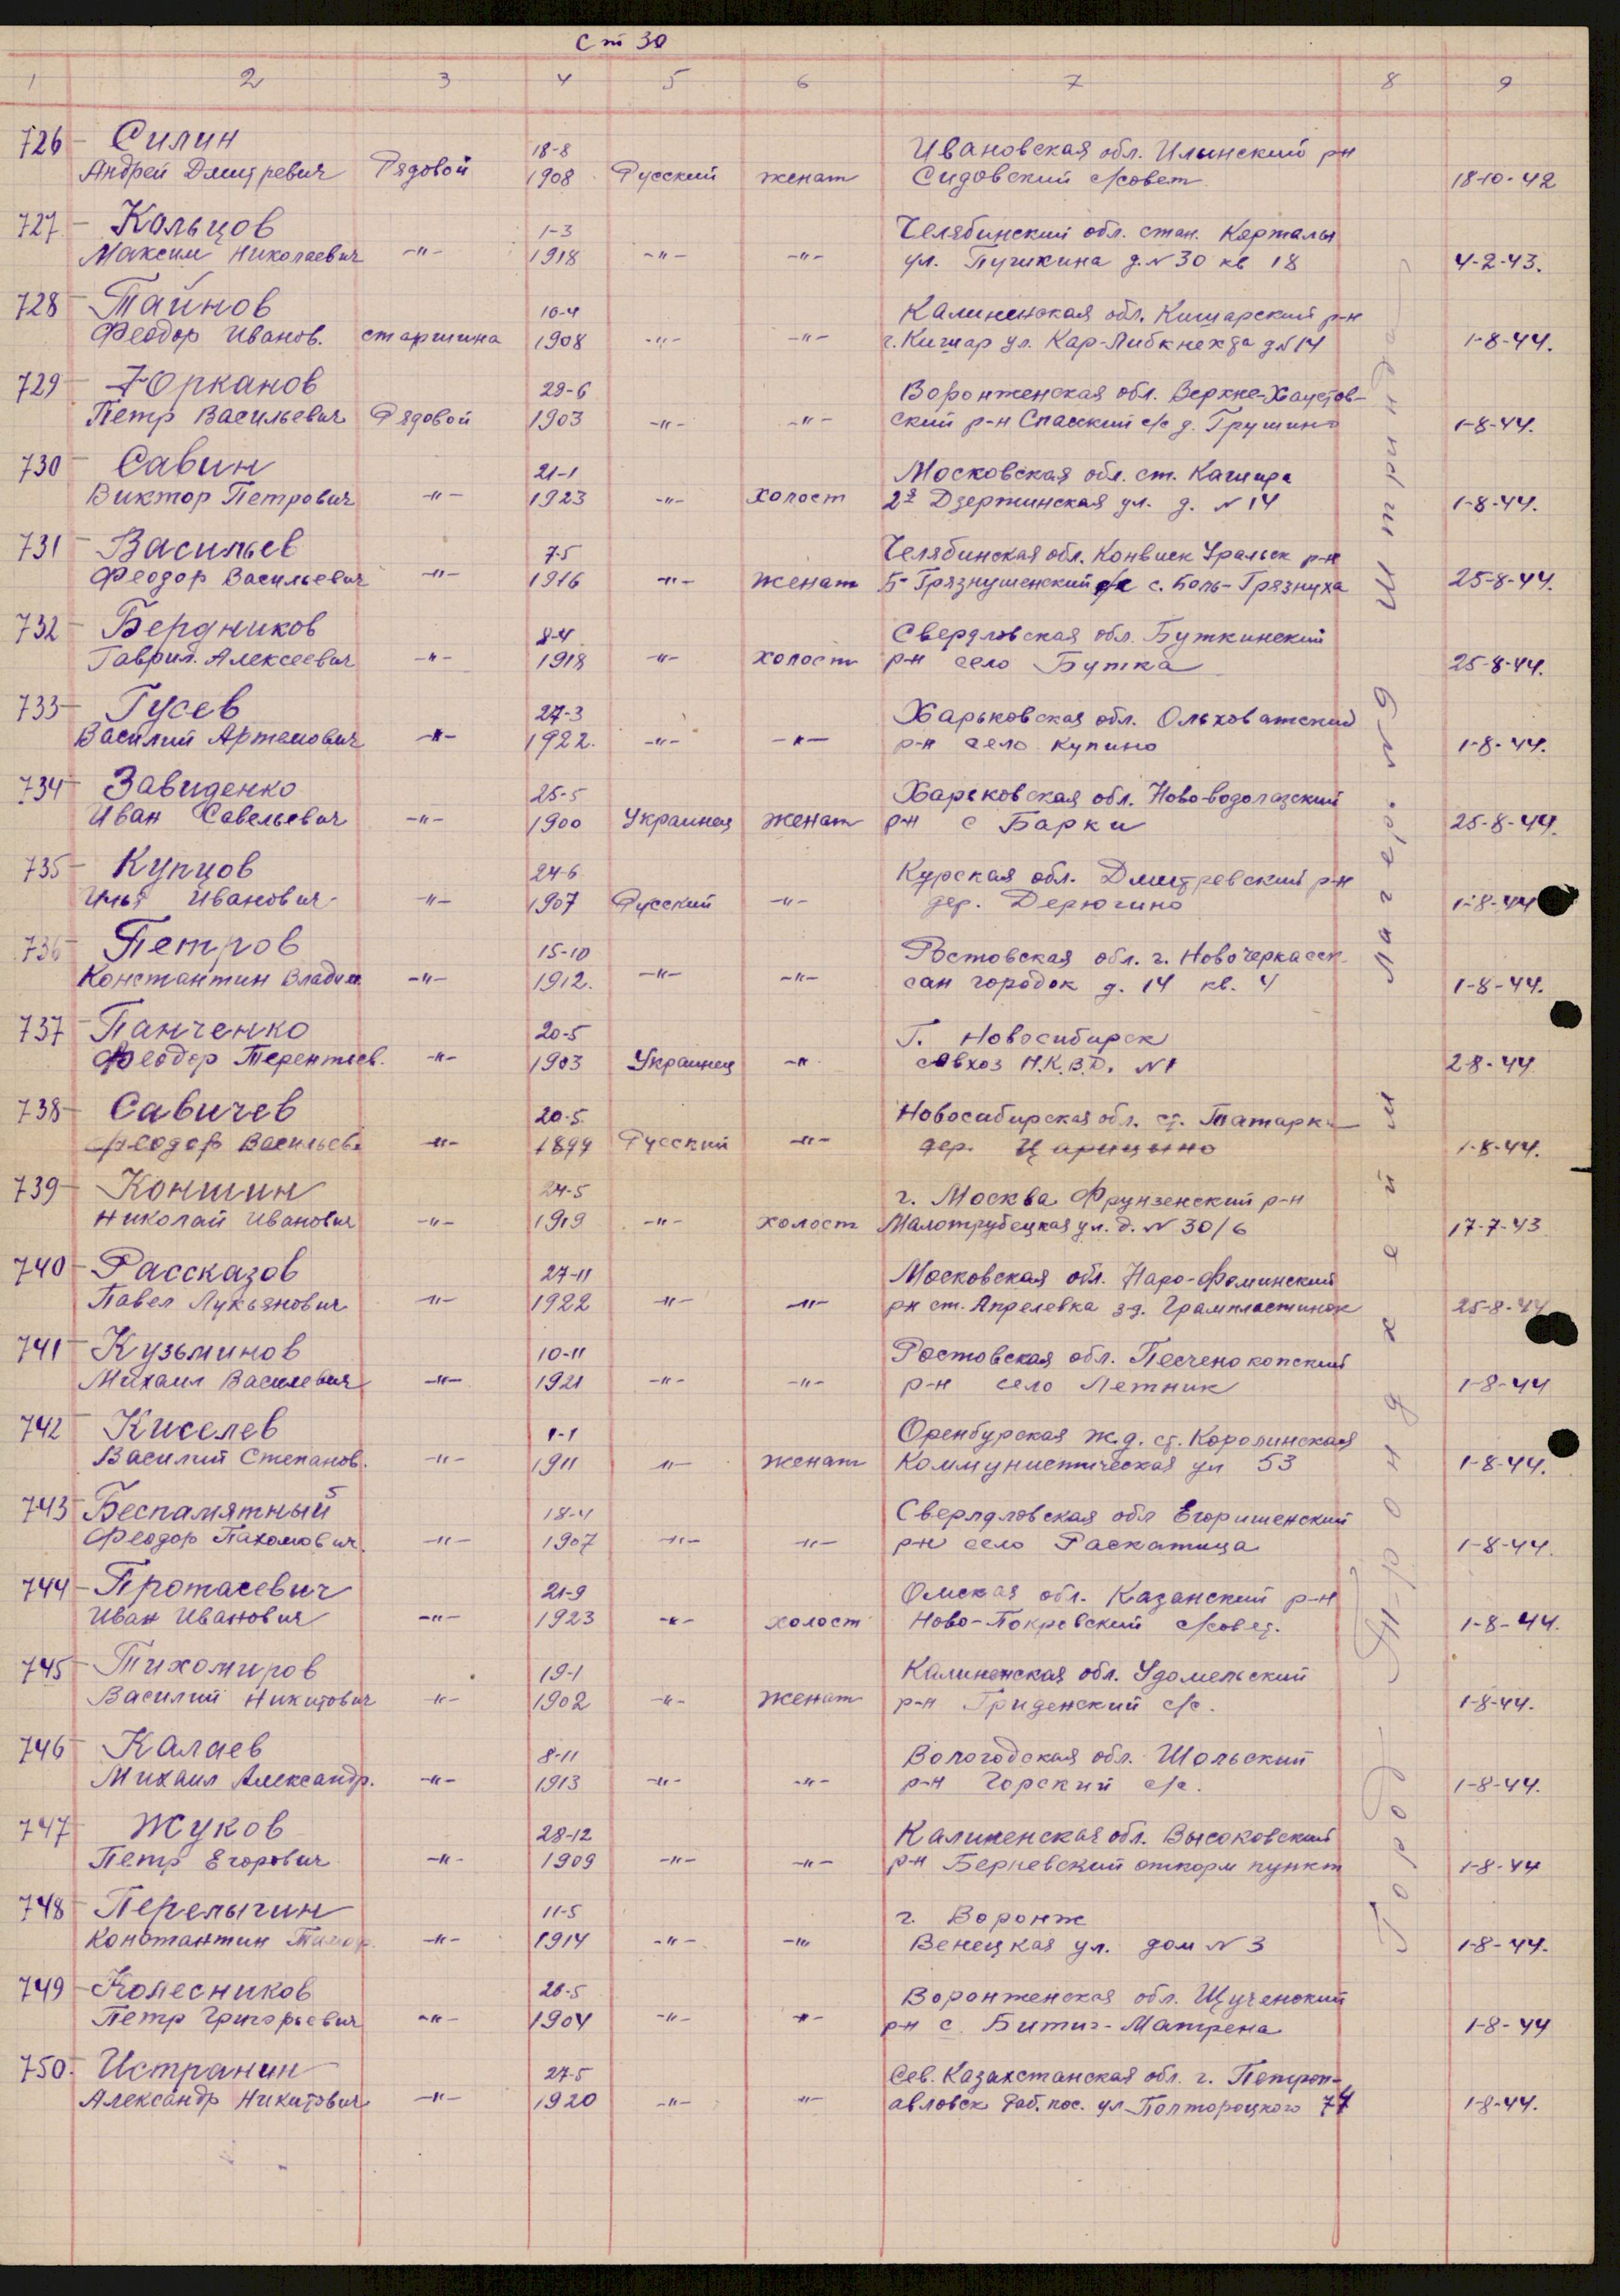 Ст 30
1 2 3 4 5 6 7 8 9
726 - Силин 18-8 Ивановская обл. Ильинский р-н
Андрей Дмитревич Рядовой 1908 Русский женат Сидовский с/совет 18-10-42
727 - Кольцов 1-3 Челябинский обл. стан. Карталы
Максим Николаевич -"- 1918 -"- -"- ул. Пушкина д. № 30 кв 18 4-2-43.
728 - Тайнов 10-4 Калиненская обл. Кишарский р-н
Феодор Иванов. старшина 1908 -"- -"- г. Кишар ул. Кар-Либкнехда д № 14 1-8-44.
729 - Юрканов 29-6 Воронженская обл. Верхне-Хаустов-
Петр Васильевич Рядовой 1903 -"- -"- ский р-н Спасский с/с д. Грушино 1-8-44.
730 - Савин 21-1 Московская обл. ст. Кашира
Виктор Петрович -"- 1923 -"- холост 2я Дзержинская ул. д. № 14 1-8-44.
731 - Васильев 7-5 Челябинская обл. Уральск р-н
Феодор Васильевич -"- 1916 -"- женат Б-Грязнушенский с/с с. Боль-Грязнуха 25-8-44.
732 - Бердников 8-4 Свердловская обл. Буткинский
Гаврил. Алексеевич -"- 1918 -"- холост р-н село Бутка 25-8-44.
733 - Гусев 27-3 Харьковская обл. Ольховатский
Василий Артемович -"- 1922. -"- -"- р-н село Купино 1-8-44.
734 - Завиденко 25-5 Харьковская обл. Ново-водолазский
Иван Савельевич -"- 1900 Украинец женат р-н с Барки 25-8-44.
735 - Купцов 24-6 Курская обл. Дмитревский р-н
Илья Иванович -"- 1907 Русский -"- дер. Дерюгино 1-8-44
736 - Петров 15-10 Ростовская обл. г. Новочеркасск
Константин Владим. -"- 1912. -"- -"- сан городок д. 14 кв. 4 1-8-44.
737 - Панченко 20-5 Г. Новосибирск
Феодор Терентьев. -"- 1903 Украинец -"- совхоз Н.К.В.Д. №1 2-8-44
738 - Савичев 20-5. Новосибирская обл. ст. Татарка
Феодор Васильев. -"- 1899 Русский -"- дер. Царицыно 1-8-44.
739 - Коншин 24-5 г. Москва Фрунзенский р-н
Николай Иванович -"- 1919 -"- холост Малотрубецкая ул. д. № 30/6 17-7-43
740 - Рассказов 27-11 Московская обл. Наро-Фоминский
Павел Лукьянович -"- 1922 -"- -"- р-н ст. Апрелевка з-д. Грампластинок 25-8-44
741 - Кузьминов 10-11 Ростовская обл. Песченокопский
Михаил Василевич -"- 1921 -"- -"- р-н село Летник 1-8-44
742 - Киселев 1-1 Оренбурская ж.д. ст. Каролинская
Василий Степанов. -"- 1911 -"- женат Коммунистическая ул 53 1-8-44.
743 - Беспамятный 18-4 Свердловская обл Егоршенский
Феодор Пахомович. -"- 1907 -"- -"- р-н село Раскатица 1-8-44.
744 - Протасевич 21-9 Омская обл. Казанский р-н
Иван Иванович -"- 1923 -"- холост Ново-Покровский с/совет. 1-8-44.
745 - Тихомиров 19-1 Калиненская обл. Удомельский
Василий Никитович -"- 1902 -"- женат р-н Гриденский с/с. 1-8-44.
746 - Калаев 8-11 Вологодская обл. Шольский
Михаил Александр. -"- 1913 -"- -"- р-н Горский с/с. 1-8-44.
747 - Жуков 28-12 Калиненская обл. Высоковский
Петр Егорович -"- 1909 -"- -"- р-н Берневский откорм пункт 1-8-44
748 - Перелыгин 11-5 г. Воронж
Константин -"- 1914 -"- -"- Венецкая ул. дом № 3 1-8-44.
749 - Колесников 26-5 Воронженская обл. Щученский
Петр Григорьевич -"- 1904 -"- -"- р-н с Битиг-Матрена 1-8-44
750. Истранин 27-5 Сев. Казахстанская обл. г. Петроп-
Александр Никитович -"- 1920 -"- -"- авловск Раб. пос. ул Полтороцкого 74 1-8-44.
Город Трондхейм Лагерь № 9 Штринда